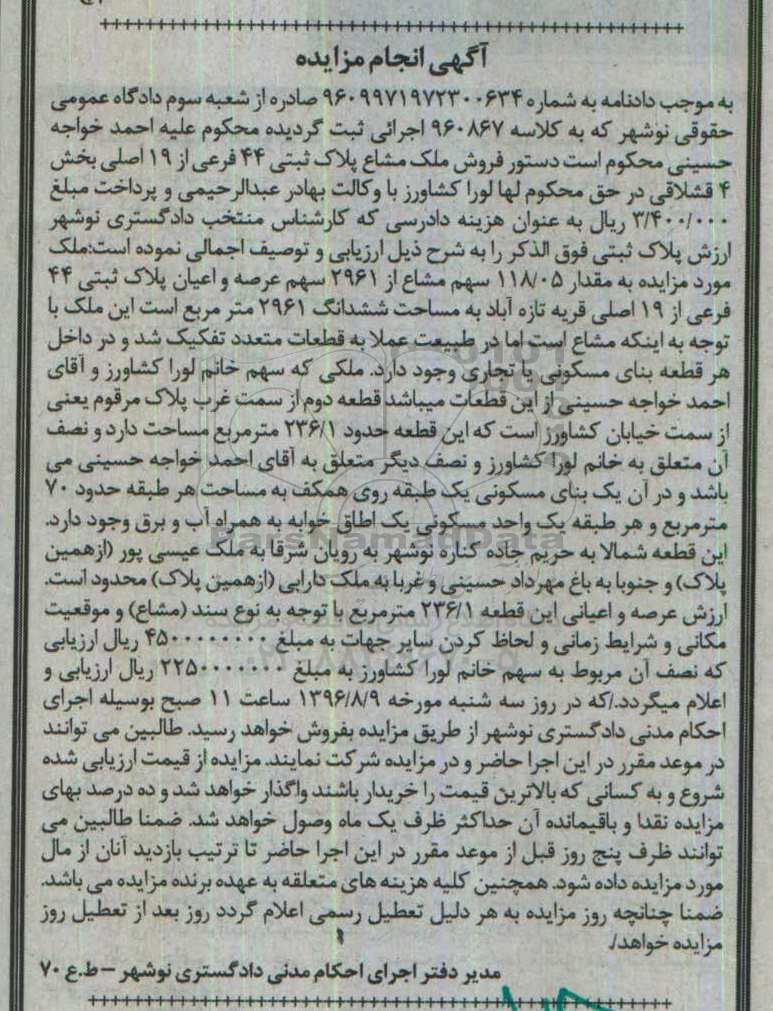 آگهی انجام مزایده
به موجب دادنامه به شماره ۹۶۰۹۹۷۱۹۷۲۳۰۰۶۳۴ صادره از شعبه سوم دادگاه عمومی
حقوقی نوشهر که به کلاسه ۹۶۰۸۶۷ اجرائی ثبت گردیده محکوم علیه احمد خواجه
حسینی محکوم است دستور فروش ملک مشاع پلاک ثبتی ۴۴ فرعی از ۱۹ اصلی بخش
۴ قشلاقی در حق محکوم لها لورا کشاورز با وکالت بهادر عبدالرحیمی و پرداخت مبلغ
۳/۴۰۰/۰۰۰ ریال به عنوان هزینه دادرسی که کارشناس منتخب دادگستری نوشهر
ارزش پلاک ثبتی فوق الذکر را به شرح ذیل ارزیابی و توصیف اجمالی نموده است:ملک
مورد مزایده به مقدار ۱۱۸/۰۵ سهم مشاع از ۲۹۶۱ سهم عرصه و اعیان پلاک ثبتی ۴۴
فرعی از ۱۹ اصلی قریه تازه آباد به مساحت ششدانگ ۲۹۶۱ متر مربع است این ملک با
توجه به اینکه مشاع است اما در طبیعت عملا به قطعات متعدد تفکیک شد و در داخل
هر قطعه بنای مسکونی یا تجاری وجود دارد. ملکی که سهم خانم لورا کشاورز و آقای
احمد خواجه حسینی از این قطعات میباشد قطعه دوم از سمت غرب پلاک مرقوم یعنی
از سمت خیابان کشاورز است که این قطعه حدود ۲۳۶/۱ مترمربع مساحت دارد و نصف
آن متعلق به خانم لورا کشاورز و نصف دیگر متعلق به آقای احمد خواجه حسینی می
باشد و در آن یک بنای مسکونی یک طبقه روی همکف به مساحت هر طبقه حدود ۷۰
مترمربع و هر طبقه یک واحد مسکونی یک اطاق خوابه به همراه آب و برق وجود دارد.
این قطعه شمالا به حریم جاده کناره نوشهر به رویان شرقا به ملک عیسی پور (ازهمین
پلاک) و جنوبا به باغ مهرداد حسینی و غربا به ملک دارابی (ازهمین پلاک) محدود است.
ارزش عرصه و اعیانی این قطعه ۲۳۶/۱ مترمربع با توجه به نوع سند (مشاع) و موقعیت
مکانی و شرایط زمانی و لحاظ کردن سایر جهات به مبلغ ۴۵۰۰۰۰۰۰۰۰۰ ریال ارزیابی
که نصف آن مربوط به سهم خانم لورا کشاورز به مبلغ ۲۲۵۰۰۰۰۰۰۰ ریال ارزیابی و
اعلام میگردد./که در روز سه شنبه مورخه ۱۳۹۶/۸/۹ ساعت ۱۱ صبح بوسیله اجرای
احکام مدنی دادگستری نوشهر از طریق مزایده بفروش خواهد رسید. طالبین می توانند
در موعد مقرر در این اجرا حاضر و در مزایده شرکت نمایند. مزایده از قیمت ارزیابی شده
شروع و به کسانی که بالاترین قیمت را خریدار باشند واگذار خواهد شد و ده درصد بهای
مزایده نقدا و باقیمانده آن حداکثر ظرف یک ماه وصول خواهد شد. ضمنا طالبین می
توانند ظرف پنج روز قبل از موعد مقرر در این اجرا حاضر تا ترتیب بازدید آنان از مال
مورد مزایده داده شود. همچنین کلیه هزینه های متعلقه به عهده برنده مزایده می باشد.
ضمنا چنانچه روز مزایده به هر دلیل تعطیل رسمی اعلام گردد روز بعد از تعطیل روز
مزایده خواهد/.
مدیر دفتر اجرای احکام مدنی دادگستری نوشهر – ط.ع ۷۰
ParsNamadData